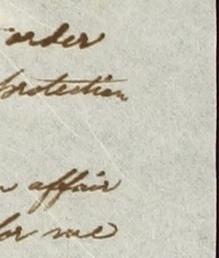 order
protection
affair
for me